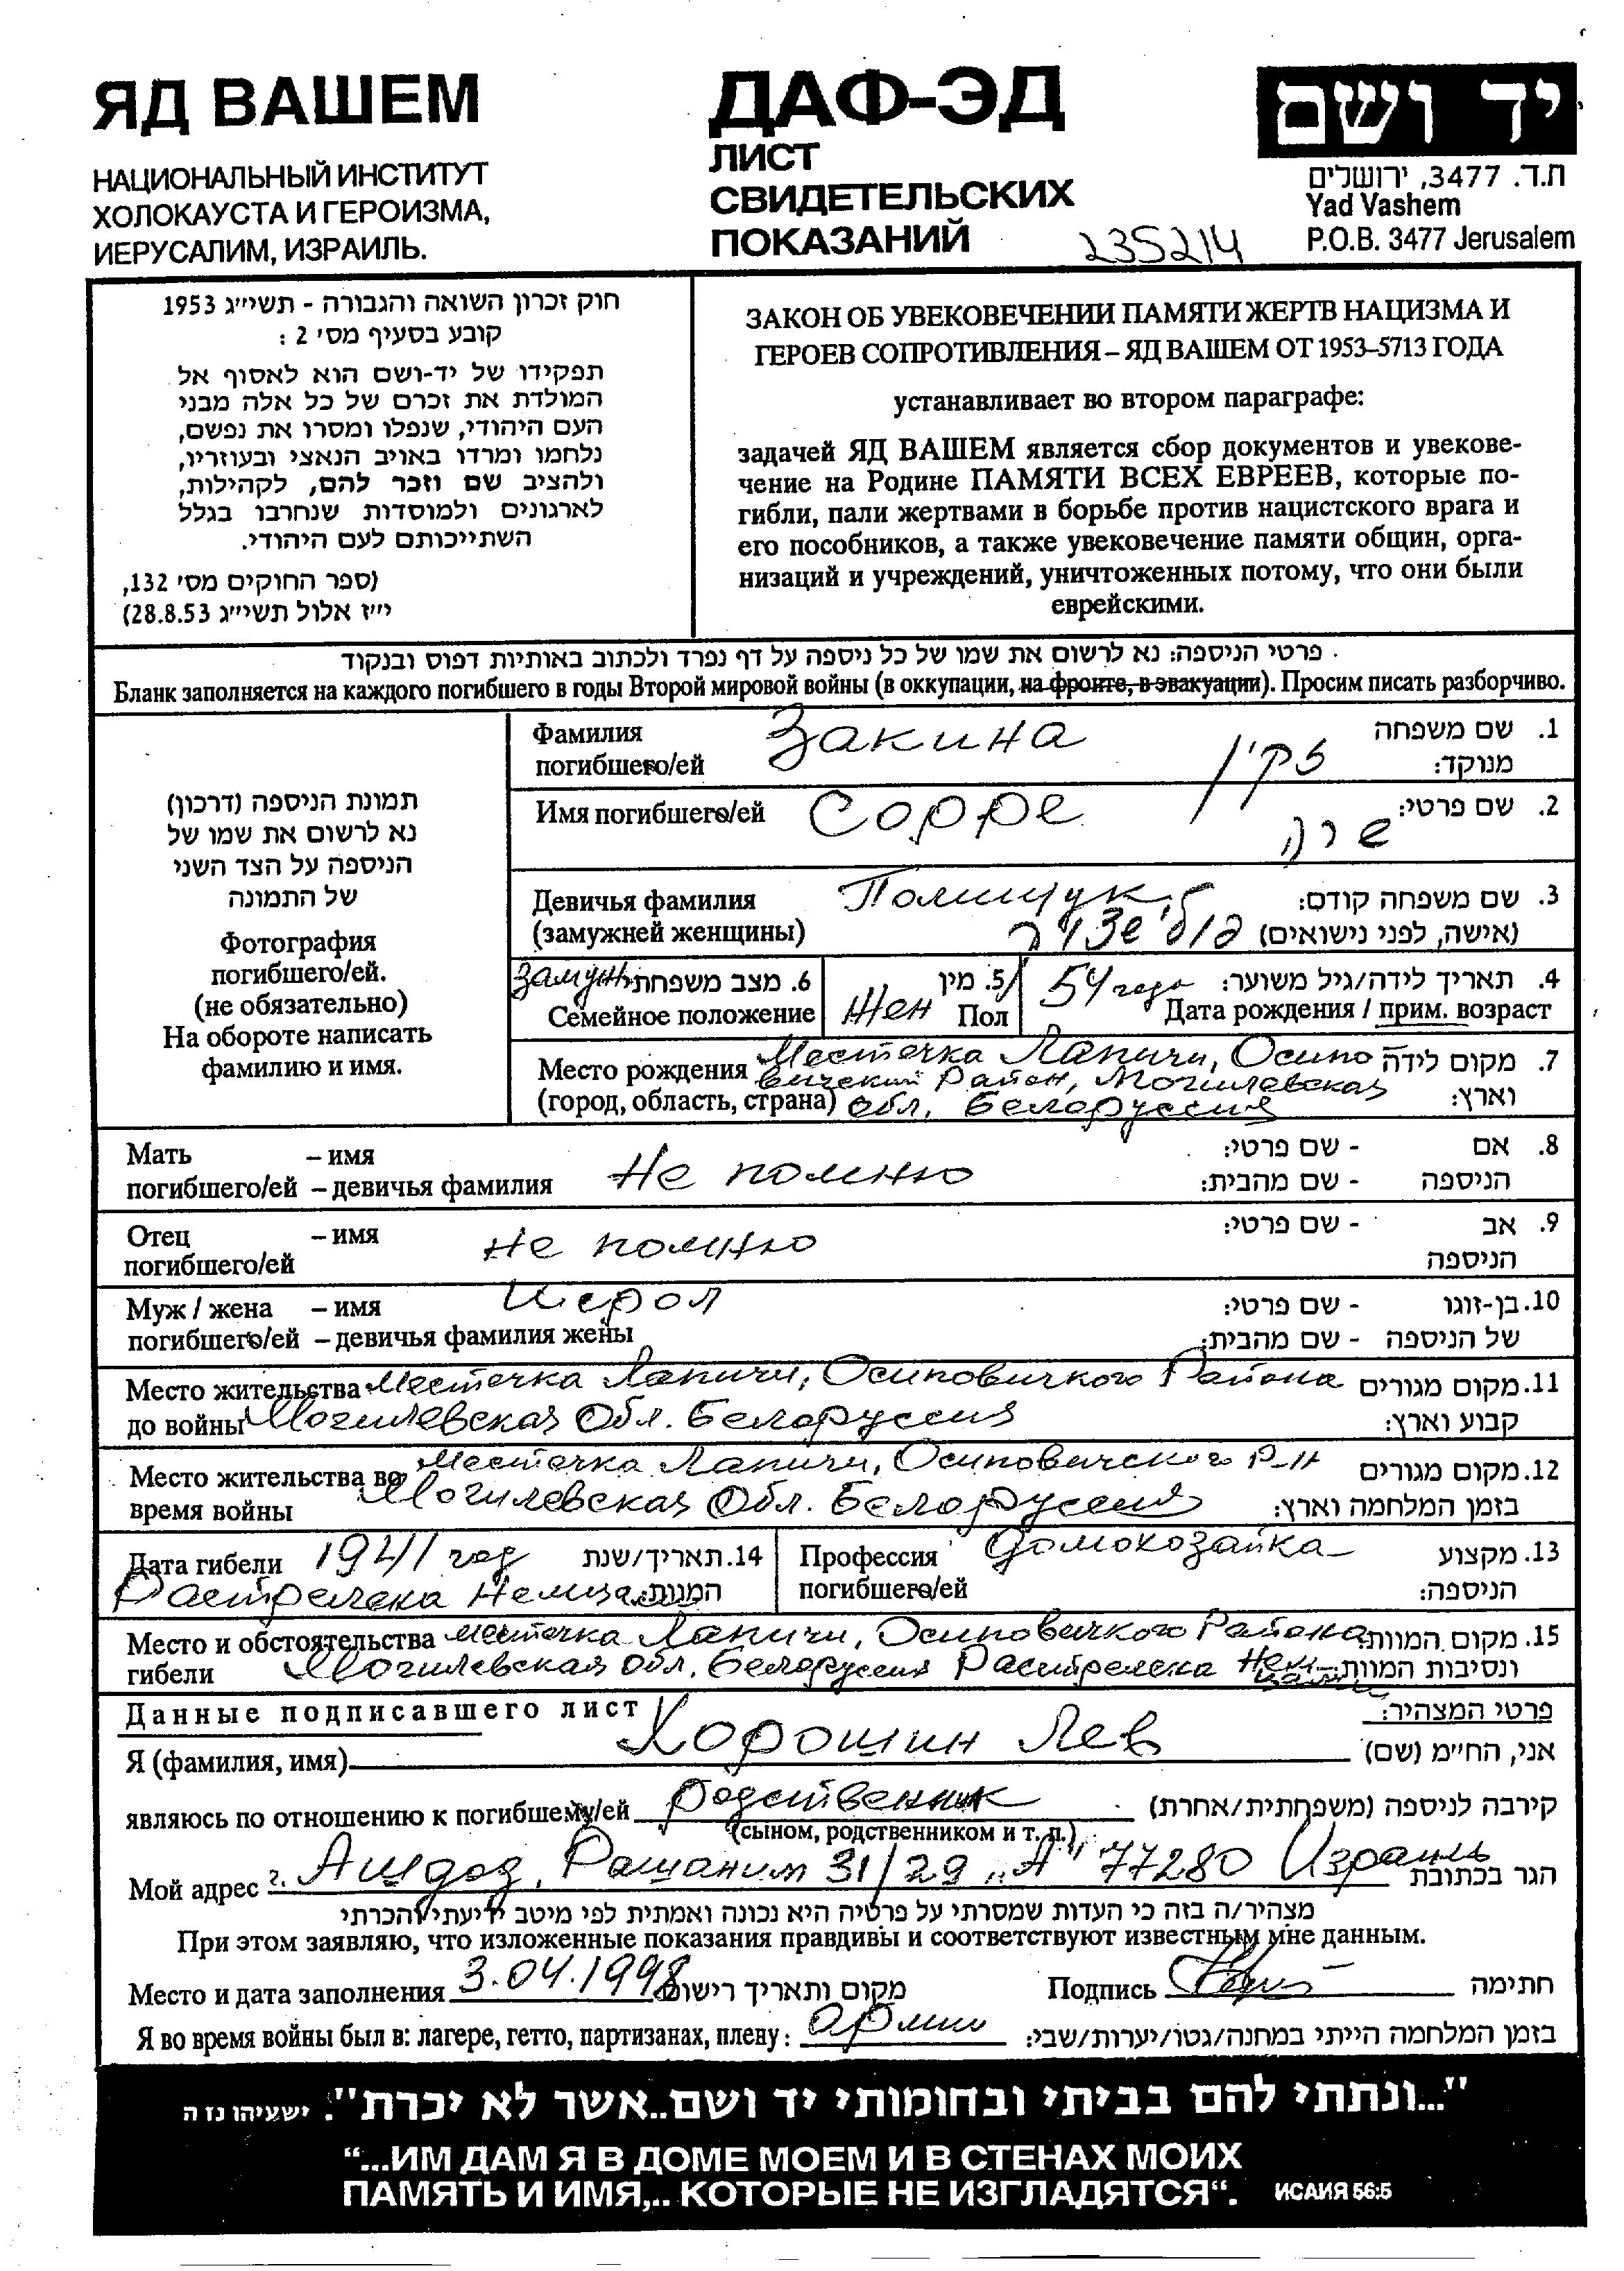 ЯД ВАШЕМ
НАЦИОНАЛЬНЫЙ ИНСТИТУТ
ХОЛОКАУСТА И ГЕРОИЗМА,
ИЕРУСАЛИМ, ИЗРАИЛЬ.
ДАФ-ЭД
ЛИСТ
СВИДЕТЕЛЬСКИХ
ПОКАЗАНИЙ
235214
יד ושם
ת.ד. 3477, ירושלים
Yad Vashem
P.O.B. 3477 Jerusalem
חוק זכרון השואה והגבורה - תשי״ג 1953
קובע בסעיף מס׳ 2 :
תפקידו של יד-ושם הוא לאסוף אל
המולדת את זכרם של כל אלה מבני
העם היהודי, שנפלו ומסרו את נפשם,
נלחמו ומרדו באויב הנאצי ובעוזריו,
ולהציב שם וזכר להם, לקהילות,
לארגונים ולמוסדות שנחרבו בגלל
השתייכותם לעם היהודי.
(ספר החוקים מס׳ 132,
י״ז אלול תשי״ג 28.8.53)
ЗАКОН ОБ УВЕКОВЕЧЕНИИ ПАМЯТИ ЖЕРТВ НАЦИЗМА И
ГЕРОЕВ СОПРОТИВЛЕНИЯ – ЯД ВАШЕМ ОТ 1953–5713 ГОДА
устанавливает во втором параграфе:
задачей ЯД ВАШЕМ является сбор документов и увекове-
чение на Родине ПАМЯТИ ВСЕХ ЕВРЕЕВ, которые по-
гибли, пали жертвами в борьбе против нацистского врага и
его пособников, а также увековечение памяти общин, орга-
низаций и учреждений, уничтоженных потому, что они были
еврейскими.
פרטי הניספה: נא לרשום את שמו של כל ניספה על דף נפרד ולכתוב באותיות דפוס ובנקוד
Бланк заполняется на каждого погибшего в годы Второй мировой войны (в оккупации, на фронте, в эвакуации). Просим писать разборчиво.
תמונת הניספה (דרכון)
נא לרשום את שמו של
הניספה על הצד השני
של התמונה
Фотография
погибшего/ей.
(не обязательно)
На обороте написать
фамилию и имя.
Фамилия Закина 1. שם משפחה
погибшего/ей זקין מנוקד:
Имя погибшего/ей Сорре 2. שם פרטי:
שרה
Девичья фамилия Полищук 3. שם משפחה קודם:
(замужней женщины) פולישצוק (אישה, לפני נישואים)
замуж 6. מצב משפחתי
Семейное положение
5. מין
Жен Пол
54 года 4. תאריך לידה/גיל משוער:
Дата рождения / прим. возраст
Место рождения Местечка Лапичи, Осипо- 7. מקום לידה
вичский Район, Могилевская
(город, область, страна) Обл, Белоруссия וארץ:
Мать – имя 8. אם - שם פרטי:
погибшего/ей – девичья фамилия Не помню הניספה - שם מהבית:
Отец – имя не помню 9. אב - שם פרטי:
погибшего/ей הניספה
Муж / жена – имя Исрол 10. בן-זוגו - שם פרטי:
погибшего/ей – девичья фамилия жены של הניספה - שם מהבית:
Место жительства Местечка Лапичи, Осиповичкого Района 11. מקום מגורים
до войны Могилевская Обл. Белоруссия קבוע וארץ:
Место жительства во Местечка Лапичи, Осиповичского Р-н 12. מקום מגורים
время войны Могилевская Обл. Белоруссия בזמן המלחמה וארץ:
Дата гибели 1941 год 14. תאריך/שנת
Растрелена Немцами המוות:
Профессия домохозайка 13. מקצוע
погибшего/ей הניספה:
Место и обстоятельства местечка Лапичи, Осиповичкого Района 15. מקום המוות
гибели Могилевская обл, Белоруссия Растрелена Нем- ונסיבות המוות:
цами
Данные подписавшего лист פרטי המצהיר:
Я (фамилия, имя) Хорошин Лев אני, החי״מ (שם)
являюсь по отношению к погибшему/ей родственник קירבה לניספה (משפחתית/אחרת)
(сыном, родственником и т. п.)
Мой адрес г. Ашдод, Рашаним 31/29 „А" 77280 Израиль הגר בכתובת
מצהיר/ה בזה כי העדות שמסרתי על פרטיה היא נכונה ואמתית לפי מיטב ידיעתי והכרתי
При этом заявляю, что изложенные показания правдивы и соответствуют известным мне данным.
Место и дата заполнения 3.04.1998 מקום ותאריך רישום Подпись חתימה
Я во время войны был в: лагере, гетто, партизанах, плену: армии בזמן המלחמה הייתי במחנה/גטו/יערות/שבי:
"...ונתתי להם בביתי ובחומותי יד ושם..אשר לא יכרת". ישעיהו נז ה
“...ИМ ДАМ Я В ДОМЕ МОЕМ И В СТЕНАХ МОИХ
ПАМЯТЬ И ИМЯ,.. КОТОРЫЕ НЕ ИЗГЛАДЯТСЯ“. ИСАИЯ 56:5